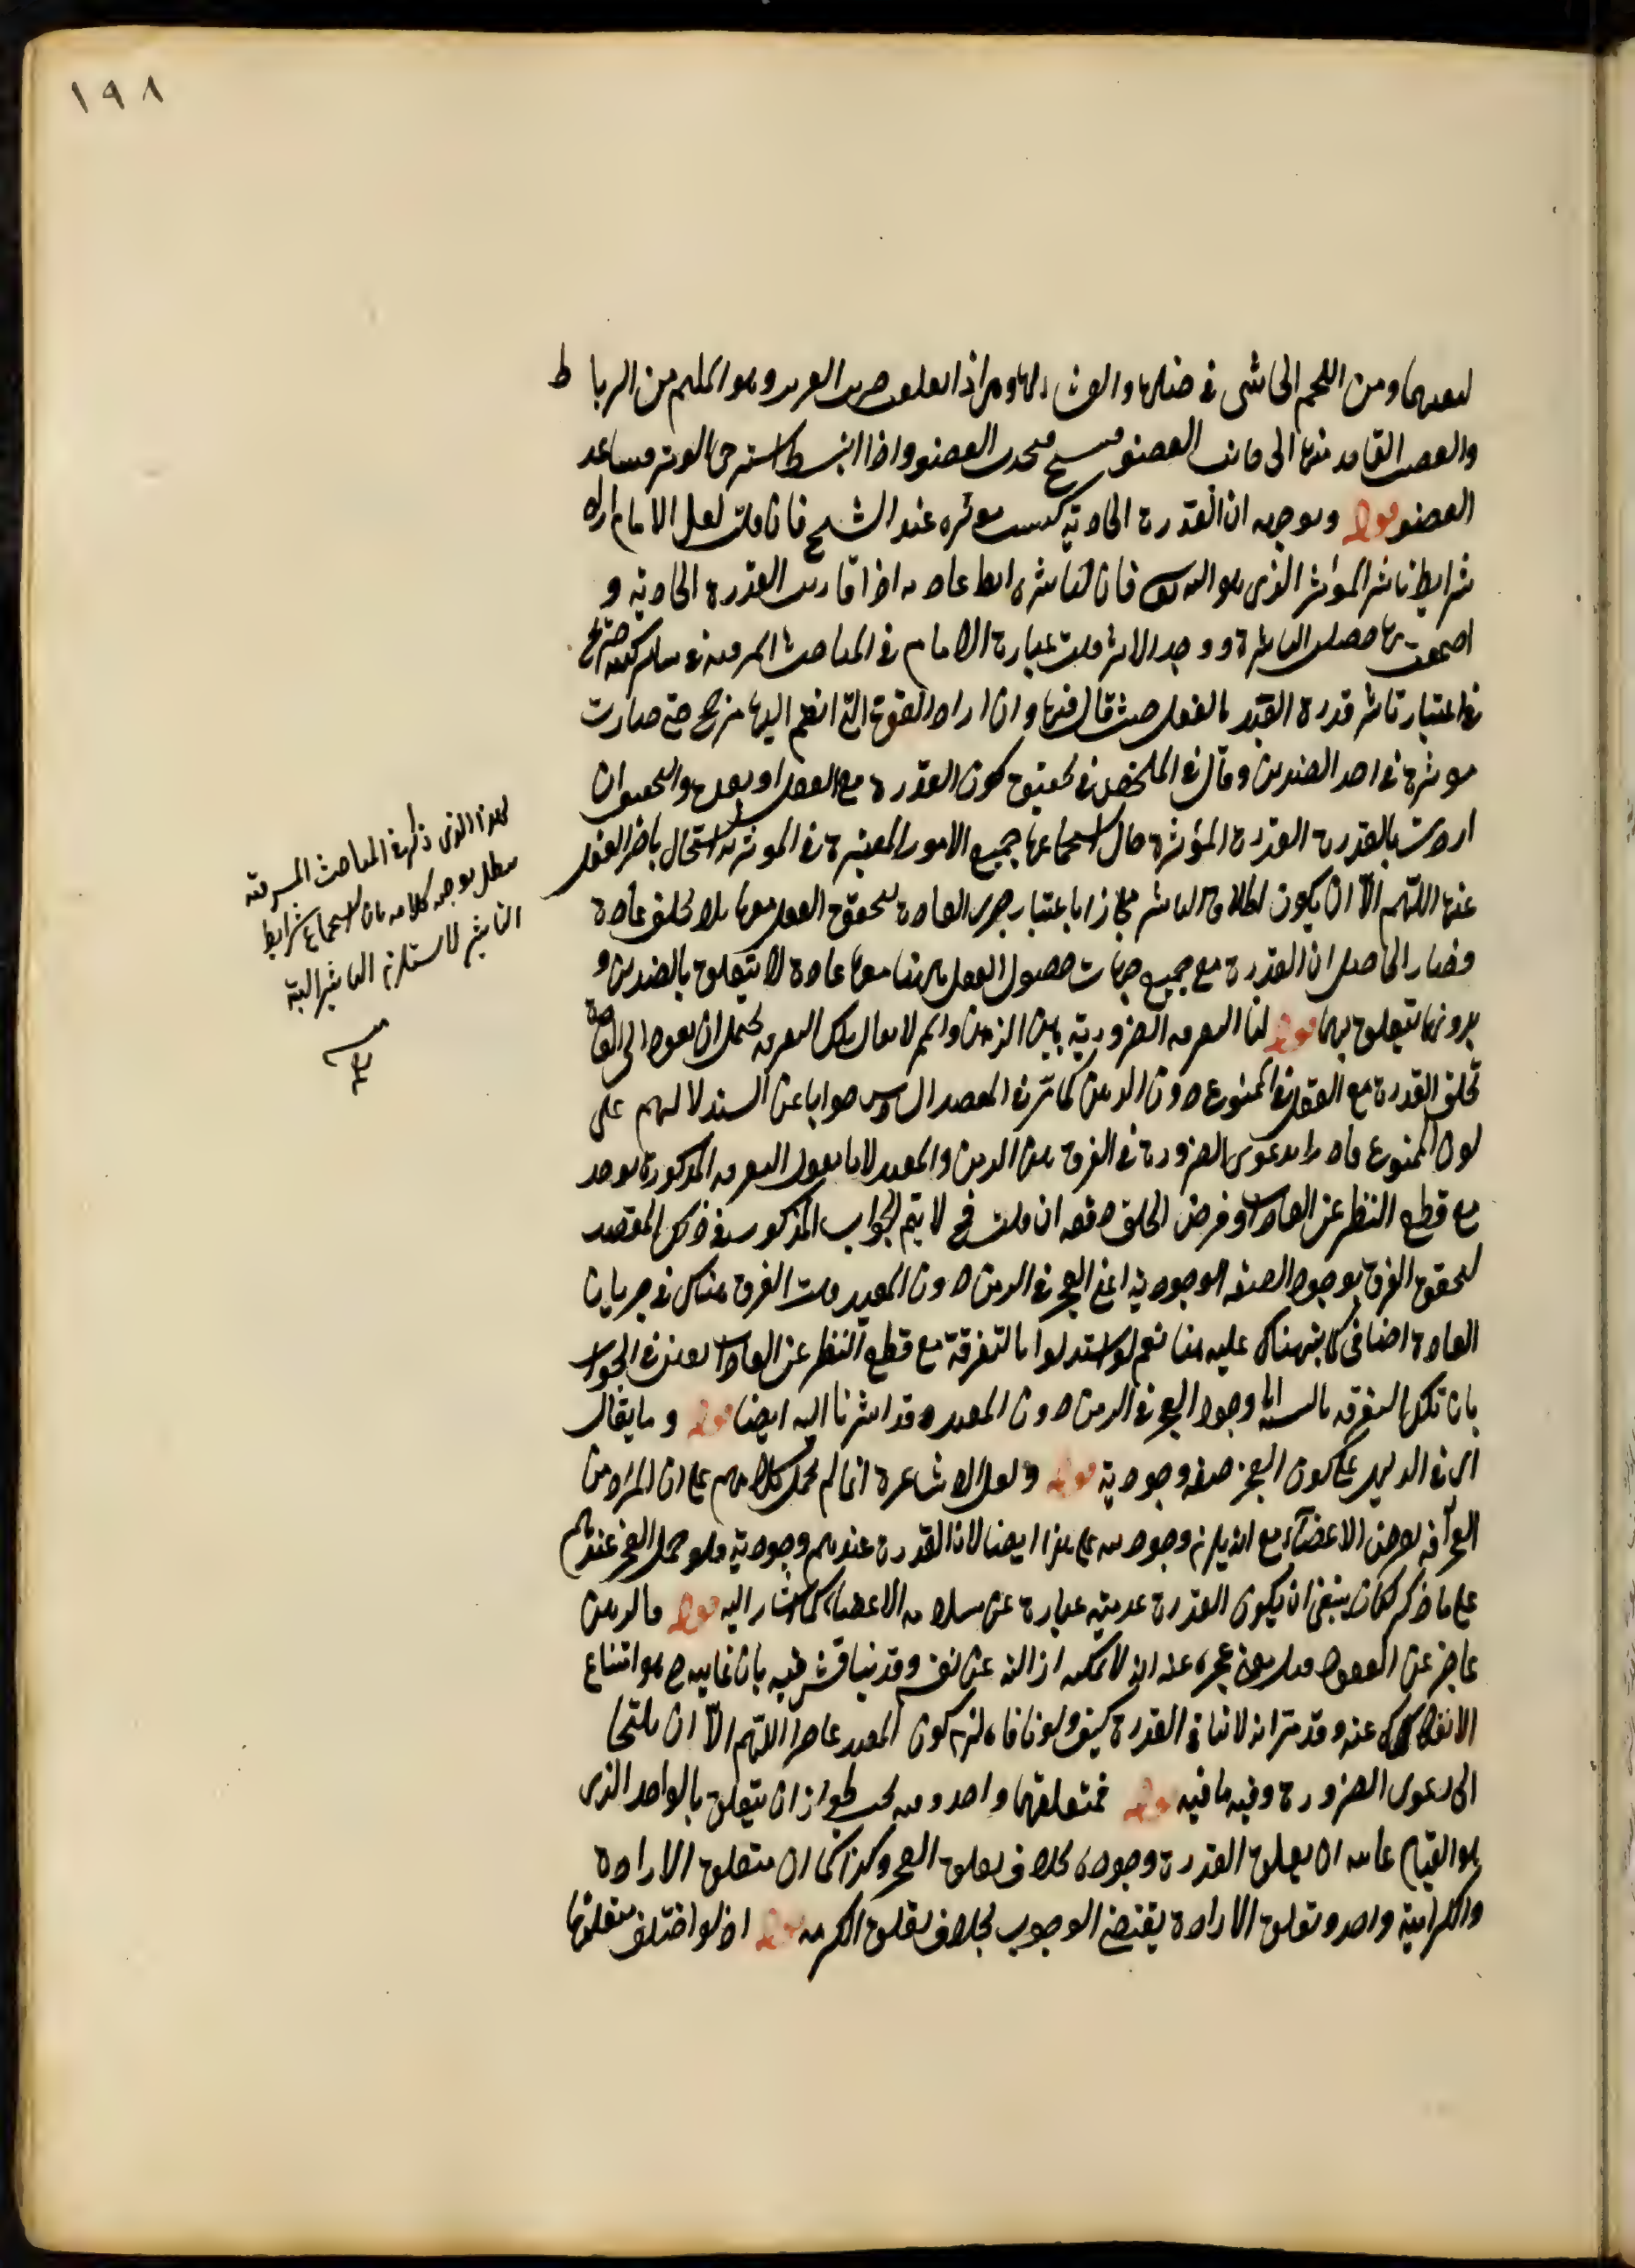 ١٩٨
ومن اللحم الحاشى فى خللها والغشاء وهى اذا العضو وهو الملتئم من الرباط
والعصب النافذ منها الى جانب العضو العضو واذا انبسط استرخى الوتر فتباعد
العضو قوله وتوجيهه ان القدرة الحادثة ليست مؤثره عند الشيخ فان قلت لعل الامام اراد
شرايط تاثير المؤثر الذى هو الله تعالى فان لتاثيره شرايط عادية اذا قارنت القدرة الحادثة و
اجتمعت بها حصل التاثير ووجد الاثر قلت عبارة الامام فى المباحث المشرقية صريح
فى اعتبار تاثير قدرة العبد بالفعل حيث قال فيها وان اراد القوة التى انضم اليها مرجح حتى صارت
موثرة فى احد الضدين وقال فى الملخص فى تحقيق كون القدرة مع الفعل او قبله والتحقيق ان
اردت بالقدرة القدرة المؤثرة حال استجماعها جميع الامور المعتبرة فى الموثرية استحال تاخر الفعل
عنها اللهم الا ان يكون اطلاق التاثير مجازا باعتبار جرى العادة بتحقق الفعل معها بلا تخلف عادة
فصار الحاصل ان القدرة مع جميع جهات حصول الفعل معها عادة لا يتعلق بالضدين و
بدونها يتعلق بهما قوله لنا التفرقة الضرورية بين الزمن والممنوع لا يقال تلك التفرقة يحتمل ان تعود الى العادة
بخلق القدرة مع الفعل فى الممنوع دون الزمن كما مر فى المقصد السادس جوابا عن استدلالهم على
كون الممنوع قادرا بدعوى الضرورة فى الفرق بين الزمن والمقيد لانا نقول التفرقة المذكورة توجد
مع قطع النظر عن العادة وفرض الخلق دفعه ان قلت فح لا يتم الجواب المذكور فى ذلك المقصد
لتحقق الفرق بوجود الصفة الوجودية اعنى العجز فى الزمن دون المقيد قلت الفرق هناك فى جريان
العادة اضافى كما نبهناك عليه هنا نعم لو استدلوا بالتفرقة مع قطع النظر عن العادة فى الجواب
بان تلك التفرقة وجود العجز فى الزمن دون المقيد وقد اشرنا اليه ايضا قوله وما يقال
اى فى الدليل على كون العجز صفة وجودية قوله ولعل الاشاعرة انما لم يحمل كلامهم على ان المراد من
العجز آفة تعرض الاعضاء مع انه يلزم وجوديته على هذا ايضا لان القدرة عندهم وجودية فلو حمل العجز عندهم
على ما ذكر لكان ينبغى ان يكون القدرة عدمية عبارة عن سلامة الاعضاء كما اشار اليه قوله فالزمن
عاجز عن القعود قيل معنى عجزه عنه انه لا يمكنه ازالته عن نفسه وقد يناقش فيه بان غايته ح هو امتناع
الانفكاك عنه وقد مر انه لا ينافى القدرة كيف ولو نافاه لزم كون المقيد عاجزا اللهم الا ان يلتجأ
الى دعوى الضرورة وفيه ما فيه قوله فمتعلقهما واحد وفيه بحث لجواز ان يتعلق بالواحد الذى
هو القيام غايته ان تعلق القدرة وجوده بخلاف تعلق العجز وكذا كما ان متعلق الارادة
والكراهية واحد وتعلق الارادة يقتضى الوجوب بخلاف تعلق الكره قوله اذ لو اختلف متعلقها
هذا الذى ذكره فى المباحث المشرقية
يبطل توجيه كلامه بان استجماع شرايط
التاثير لا يستلزم التاثير البتة